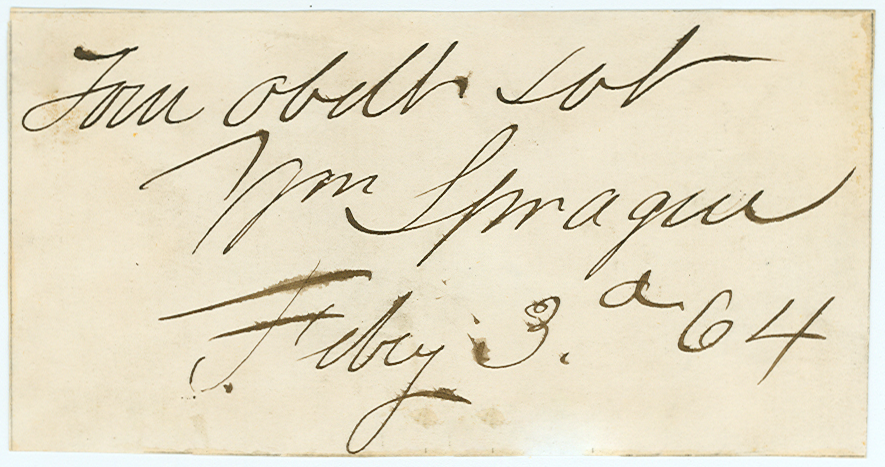 Your obdt svt
Wm Sprague
Feby 3.d 64